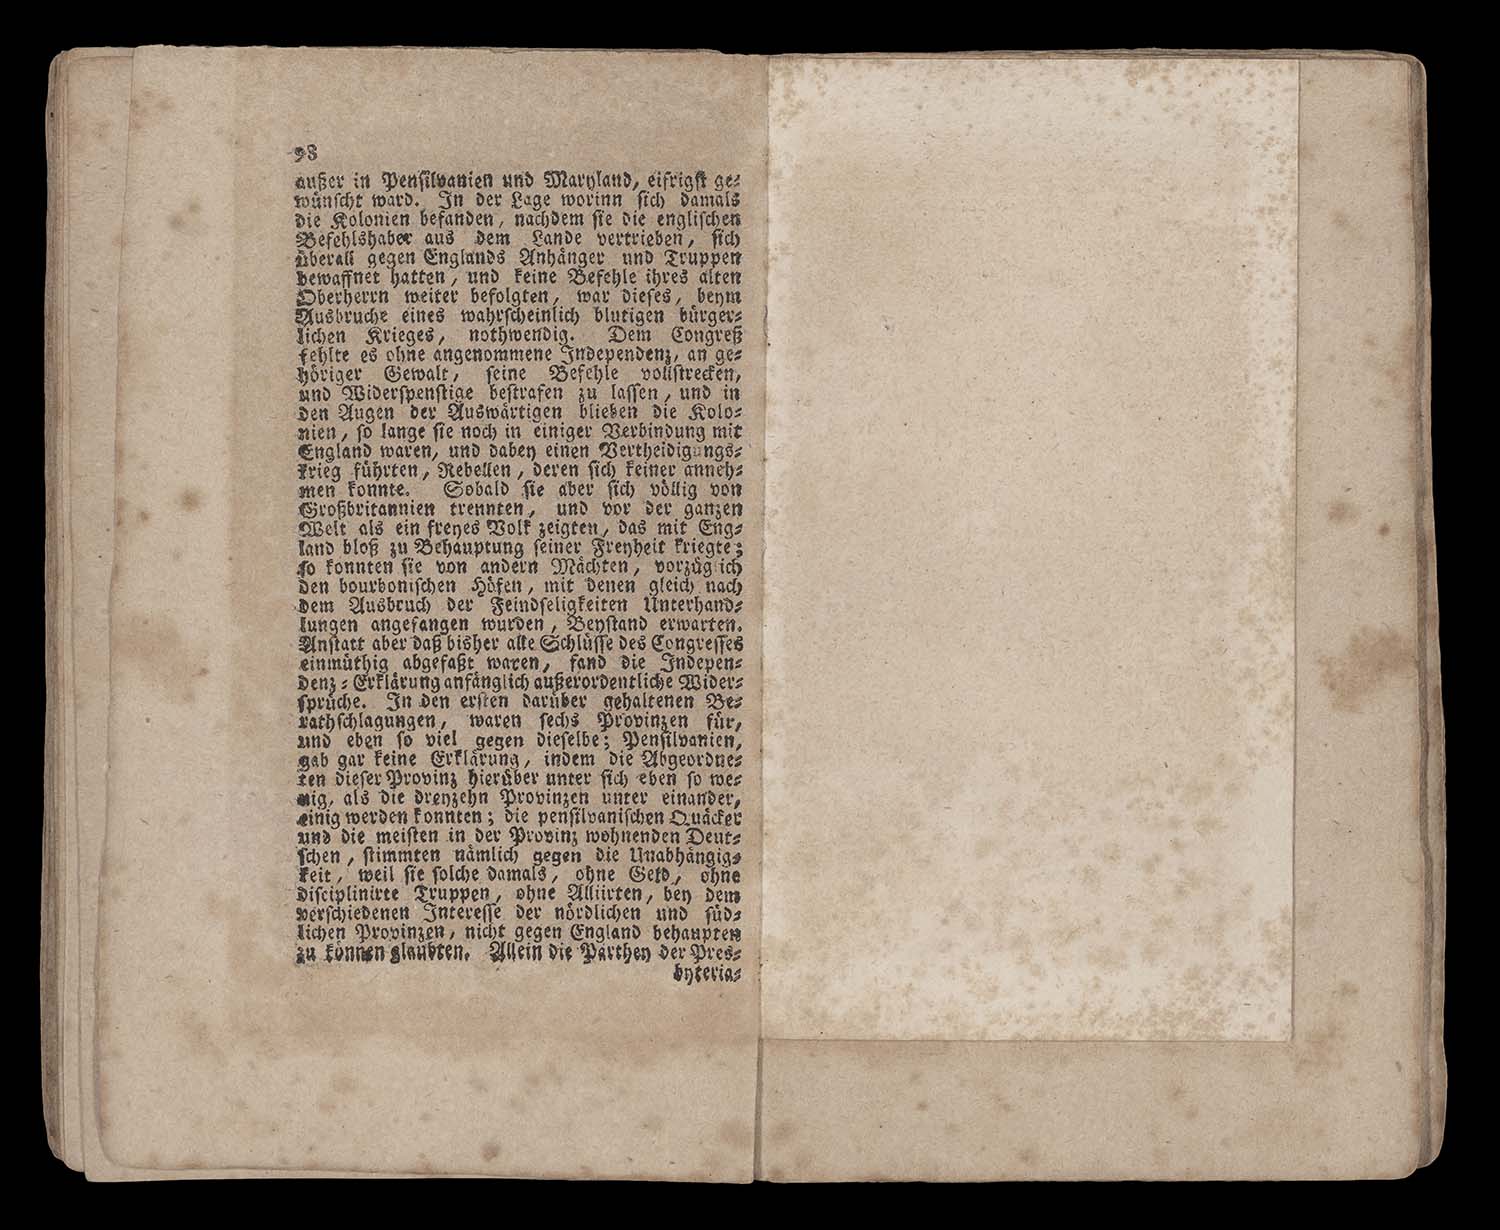 98
außer in Pensilvanien und Maryland, eifrigst ge-
wünscht ward. In der Lage worinn sich damals
die Kolonien befanden, nachdem sie die englischen
Befehlshaber aus dem Lande vertrieben, sich
überall gegen Englands Anhänger und Truppen
bewaffnet hatten, und keine Befehle ihres alten
Oberherrn weiter befolgten, war dieses, beym
Ausbruche eines wahrscheinlich blutigen bürger-
lichen Krieges, nothwendig. Dem Congreß
fehlte es ohne angenommene Independenz, an ge-
höriger Gewalt, seine Befehle vollstrecken,
und Widerspenstige bestrafen zu lassen, und in
den Augen der Auswärtigen blieben die Kolo-
nien, so lange sie noch in einiger Verbindung mit
England waren, und dabey einen Vertheidigungs-
krieg führten, Rebellen, deren sich keiner anneh-
men konnte. Sobald sie aber sich völlig von
Großbritannien trennten, und vor der ganzen
Welt als ein freyes Volk zeigten, das mit Eng-
land bloß zu Behauptung seiner Freyheit kriegte;
so konnten sie von andern Mächten, vorzüglich
den bourbonischen Höfen, mit denen gleich nach
dem Ausbruch der Feindseligkeiten Unterhand-
lungen angefangen wurden, Beystand erwarten.
Anstatt aber daß bisher alle Schlüsse des Congresses
einmüthig abgefaßt waren, fand die Indepen-
denz-Erklärung anfänglich außerordentliche Wider-
sprüche. In den ersten darüber gehaltenen Be-
rathschlagungen, waren sechs Provinzen für,
und eben so viel gegen dieselbe; Pensilvanien,
gab gar keine Erklärung, indem die Abgeordne-
ten dieser Provinz hierüber unter sich eben so we-
nig, als die dreyzehn Provinzen unter einander,
einig werden konnten; die pensilvanischen Quäcker
und die meisten in der Provinz wohnenden Deut-
schen, stimmten nämlich gegen die Unabhängig-
keit, weil sie solche damals, ohne Geld, ohne
disciplinirte Truppen, ohne Alliirten, bey dem
verschiedenen Interesse der nördlichen und süd-
lichen Provinzen, nicht gegen England behaupten
zu können glaubten. Allein die Parthey der Pres-
byteria-